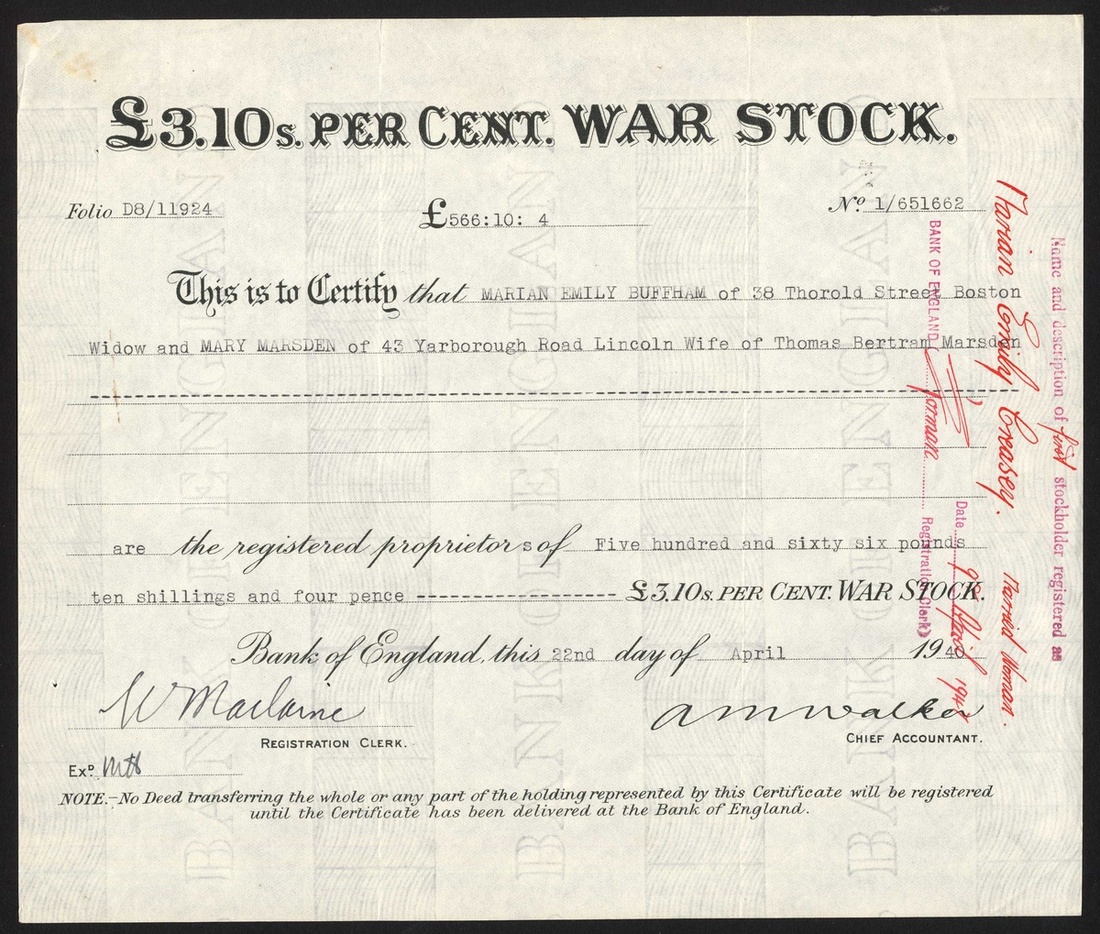 £3.10s. PER CENT. WAR STOCK.
Folio D8/11924 £566:10: 4 No 1/651662
This is to Certify that MARIAN EMILY BUFFHAM of 38 Thorold Street Boston
Widow and MARY MARSDEN of 43 Yarborough Road Lincoln Wife of Thomas Bertram Marsden
are the registered proprietors of Five hundred and sixty six pounds
ten shillings and four pence £3.10s. PER CENT. WAR STOCK.
Bank of England, this 22nd day of April 1940
W Maclaine A M Walker
REGISTRATION CLERK. CHIEF ACCOUNTANT.
Exd.
NOTE.—No Deed transferring the whole or any part of the holding represented by this Certificate will be registered
until the Certificate has been delivered at the Bank of England.
Name and description of first stockholder registered as
Marian Emily Creasey. Married Woman.
Date 9 April 194
BANK OF ENGLAND Registration Clerk
BANK OF ENGLAND
BANK OF ENGLAND
BANK OF ENGLAND